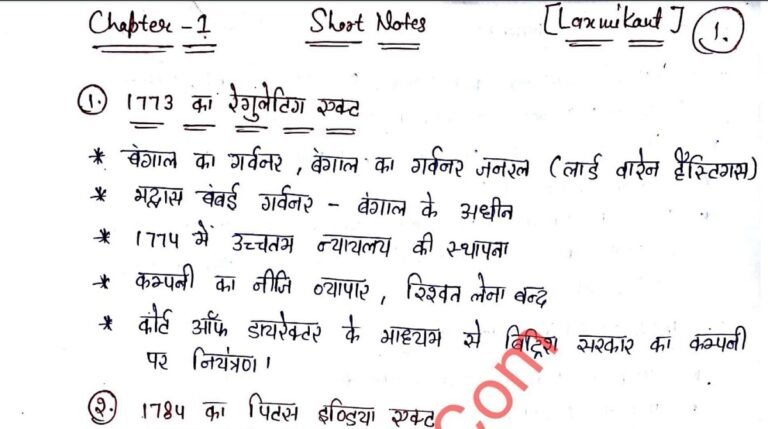 Chapter - 1 Short Notes [Laxmikant] 1.
①. 1773 का रेगुलेटिंग एक्ट
* बंगाल का गर्वनर, बंगाल का गर्वनर जनरल (लार्ड वारेन हैस्टिंगस)
* मद्रास बंबई गर्वनर - बंगाल के अधीन
* 1774 में उच्चतम न्यायलय की स्थापना
* कम्पनी का नीजि व्यापार, रिश्वत लेना बन्द
* कोर्ट ऑफ डायरेक्टर के माध्यम से ब्रिटिश सरकार का कम्पनी
पर नियंत्रण।
②. 1784 का पिटस इण्डिया एक्ट
.Com